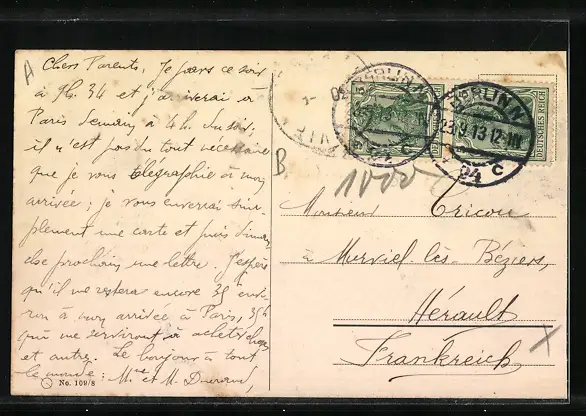 A
Chers Parents, Je pars ce soir
à 9h.34 et j'arriverai à
Paris demain à 4h. du soir,
il n'est pas du tout nécessaire
que je vous télégraphie à mon
arrivée; je vous enverrai sim-
plement une carte et puis diman-
che prochain une lettre. J'espère
qu'il me restera encore 35 envi-
ron à mon arrivée à Paris, 35 fr
qui me serviront à acheter
et autre. Le bonjour à tout
le monde: Mme et M. Durand,
No. 109/8
B
1000
BERLIN N
BERLIN N
23.9.13 12-1N
24 c
DEUTSCHES REICH
Monsieur Tricou
à Murviel-lès-Béziers,
Hérault
Frankreich
X